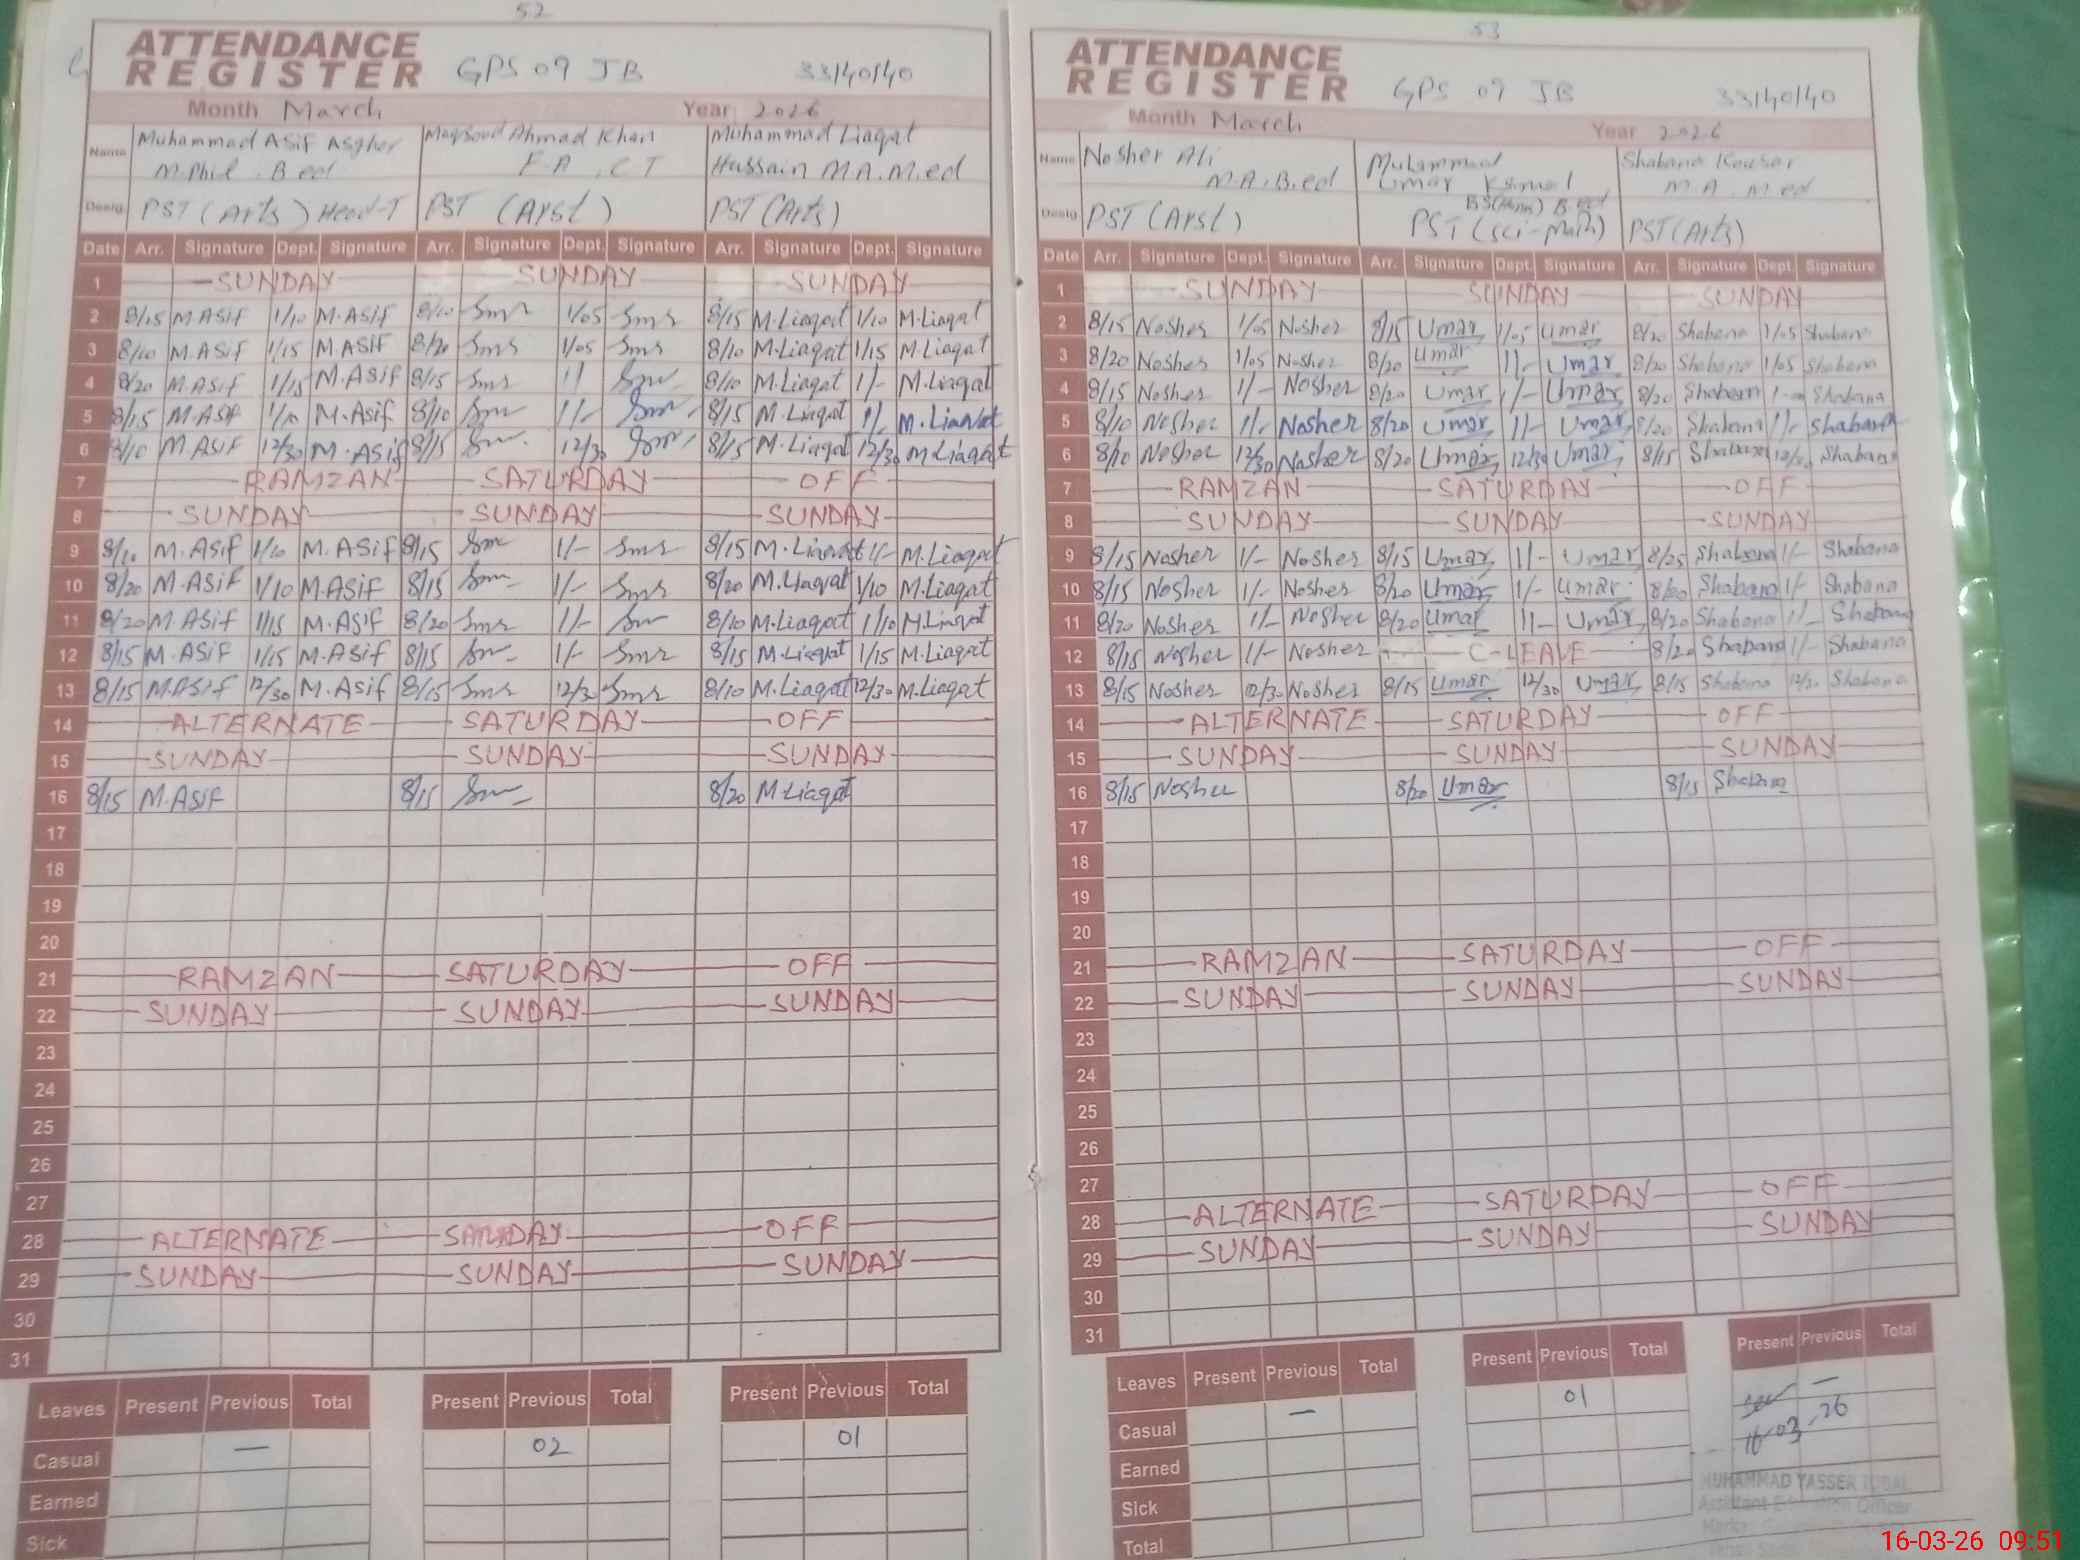 52
ATTENDANCE
REGISTER GPS 09 JB 33140140
Month March Year 2026
Name Muhammad ASif Asgher M.Phil . B ed Maqsood Ahmad Khan F.A , CT Muhammad Liaqat Hussain M.A. M.ed
Desig. PST (Arts) Head-T PST (Arst) PST (Arts)
Date Arr. Signature Dept. Signature Arr. Signature Dept. Signature Arr. Signature Dept. Signature
1 SUNDAY SUNDAY SUNDAY
2 8/15 M ASif 1/10 M.ASif 8/10 1/05 8/15 M.Liaqat 1/10 M.Liaqat
3 8/10 M.ASif 1/15 M.ASif 8/20 1/05 8/10 M.Liaqat 1/15 M.Liaqat
4 8/20 M.ASif 1/15 M.ASif 8/15 8/10 M.Liaqat 1/- M.Liaqat
5 8/15 M.ASif 1/10 M.Asif 8/10 1/- 8/15 M.Liaqat 1/- M.Liaqat
6 8/10 M.ASif 12/30 M.Asif 8/15 12/30 8/15 M.Liaqat 12/30 M.Liaqat
7 RAMZAN SATURDAY OFF
8 SUNDAY SUNDAY SUNDAY
9 8/10 M.ASif 1/10 M.ASif 8/15 1/- 8/15 M.Liaqat 1/- M.Liaqat
10 8/20 M.ASif 1/10 M.ASif 8/15 1/- 8/20 M.Liaqat 1/10 M.Liaqat
11 8/20 M.ASif 1/15 M.ASif 8/20 1/- 8/10 M.Liaqat 1/10 M.Liaqat
12 8/15 M.ASif 1/15 M.ASif 8/15 1/- 8/15 M.Liaqat 1/15 M.Liaqat
13 8/15 M.ASif 12/30 M.Asif 8/15 12/30 8/10 M.Liaqat 12/30 M.Liaqat
14 ALTERNATE SATURDAY OFF
15 SUNDAY SUNDAY SUNDAY
16 8/15 M.ASif 8/15 8/20 M.Liaqat
17
18
19
20
21 RAMZAN SATURDAY OFF
22 SUNDAY SUNDAY SUNDAY
23
24
25
26
27
28 ALTERNATE SATURDAY OFF
29 SUNDAY SUNDAY SUNDAY
30
31
Leaves Present Previous Total Present Previous Total Present Previous Total
Casual — 02 01
Earned
Sick
53
ATTENDANCE
REGISTER GPS 09 JB 33140140
Month March Year 2026
Name Nosher Ali M.A. B.ed Muhammad Umar Kamal BS(Hons) B.ed Shabana Kousar M.A. M.ed
Desig PST (Arst) PST (sci-math) PST (Arts)
Date Arr. Signature Dept. Signature Arr. Signature Dept. Signature Arr. Signature Dept. Signature
1 SUNDAY SUNDAY SUNDAY
2 8/15 Nosher 1/05 Nosher 8/15 Umar 1/05 Umar 8/20 Shabana 1/05 Shabana
3 8/20 Nosher 1/05 Nosher 8/20 Umar 1/- Umar 8/20 Shabana 1/05 Shabana
4 8/15 Nosher 1/- Nosher 8/20 Umar 1/- Umar 8/20 Shabana Shabana
5 8/10 Nosher 1/- Nosher 8/20 Umar 1/- Umar 8/20 Shabana 1/- Shabana
6 8/10 Nosher 12/30 Nosher 8/20 Umar 12/30 Umar 8/15 Shabana 12/30 Shabana
7 RAMZAN SATURDAY OFF
8 SUNDAY SUNDAY SUNDAY
9 8/15 Nosher 1/- Nosher 8/15 Umar 1/- Umar 8/25 Shabana 1/- Shabana
10 8/15 Nosher 1/- Nosher 8/20 Umar 1/- Umar 8/20 Shabana 1/- Shabana
11 8/20 Nosher 1/- Nosher 8/20 Umar 1/- Umar 8/20 Shabana 1/- Shabana
12 8/15 Nosher 1/- Nosher C-LEAVE 8/20 Shabana 1/- Shabana
13 8/15 Nosher 12/30 Nosher 8/15 Umar 12/30 Umar 8/15 Shabana 12/30 Shabana
14 ALTERNATE SATURDAY OFF
15 SUNDAY SUNDAY SUNDAY
16 8/15 Nosher 8/20 Umar 8/15 Shabana
17
18
19
20
21 RAMZAN SATURDAY OFF
22 SUNDAY SUNDAY SUNDAY
23
24
25
26
27
28 ALTERNATE SATURDAY OFF
29 SUNDAY SUNDAY SUNDAY
30
31
Leaves Present Previous Total Present Previous Total Present Previous Total
Casual — 01 —
Earned 16-03-26
Sick
Total
MUHAMMAD YASSER IQBAL
Assistant Education Officer
16-03-26 09:51